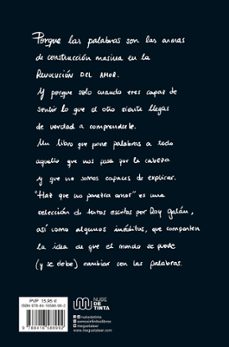 Porque las palabras son las armas
de construcción masiva en la
REVOLUCIÓN DEL AMOR.
Y porque solo cuando eres capaz de
sentir lo que el otro siente llegas
de verdad a comprenderle.
Un libro que pone palabras a todo
aquello que nos pasa por la cabeza
y que no somos capaces de explicar.
"Haz que no parezca amor" es una
selección de textos escritos por Roy Galán,
así como algunos inéditos, que comparten
la idea de que el mundo se puede
(y se debe) cambiar con las palabras.
PVP 15,95 €
NUBE
DE TINTA